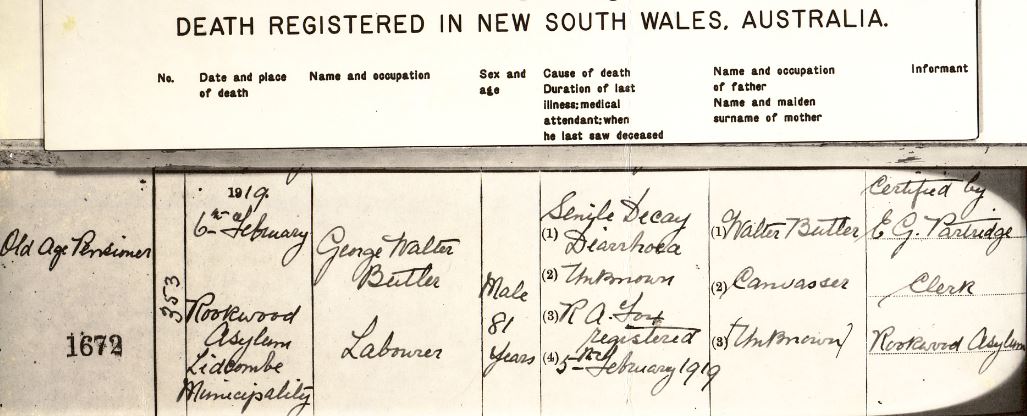 DEATH REGISTERED IN NEW SOUTH WALES, AUSTRALIA.
No.
Date and place
of death
Name and occupation
Sex and
age
Cause of death
Duration of last
illness; medical
attendant; when
he last saw deceased
Name and occupation
of father
Name and maiden
surname of mother
Informant
Old Age Pensioner
1672
353
1919.
6th February
Rookwood
Asylum
Lidcombe
Municipality
George Walter
Butler
Labourer
Male
81
Years
Senile Decay
(1) Diarrhoea
(2) Unknown
(3) R A. Fox
registered
(4) 5th February 1919
(1) Walter Butler
(2) Canvasser
(3) (Unknown)
Certified by
E G. Partridge
Clerk
Rookwood Asylum